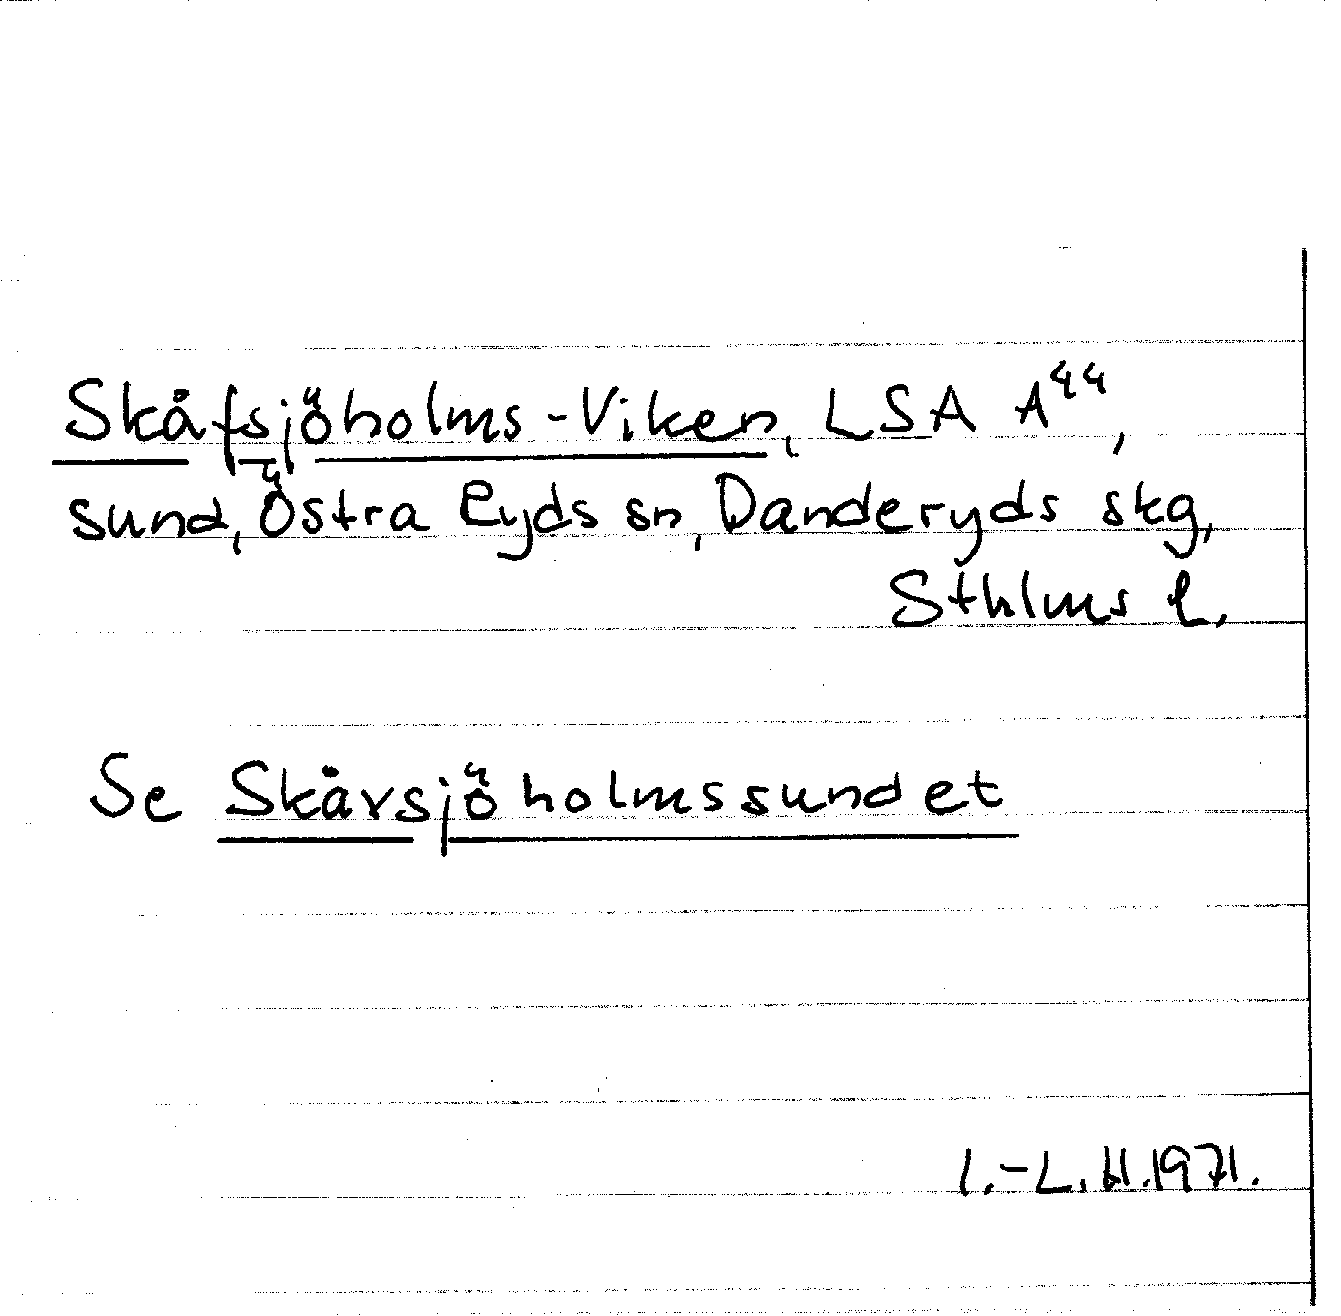 Skåfsjöholms-Viken, LSA A⁴⁴,
sund, Östra Ryds sn, Danderyds skg,
Sthlms l.
Se Skåvsjöholmssundet
I.-L. H. 1971.